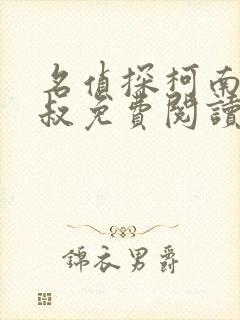 名偵探柯南
叔免費閱讀
錦衣男爵